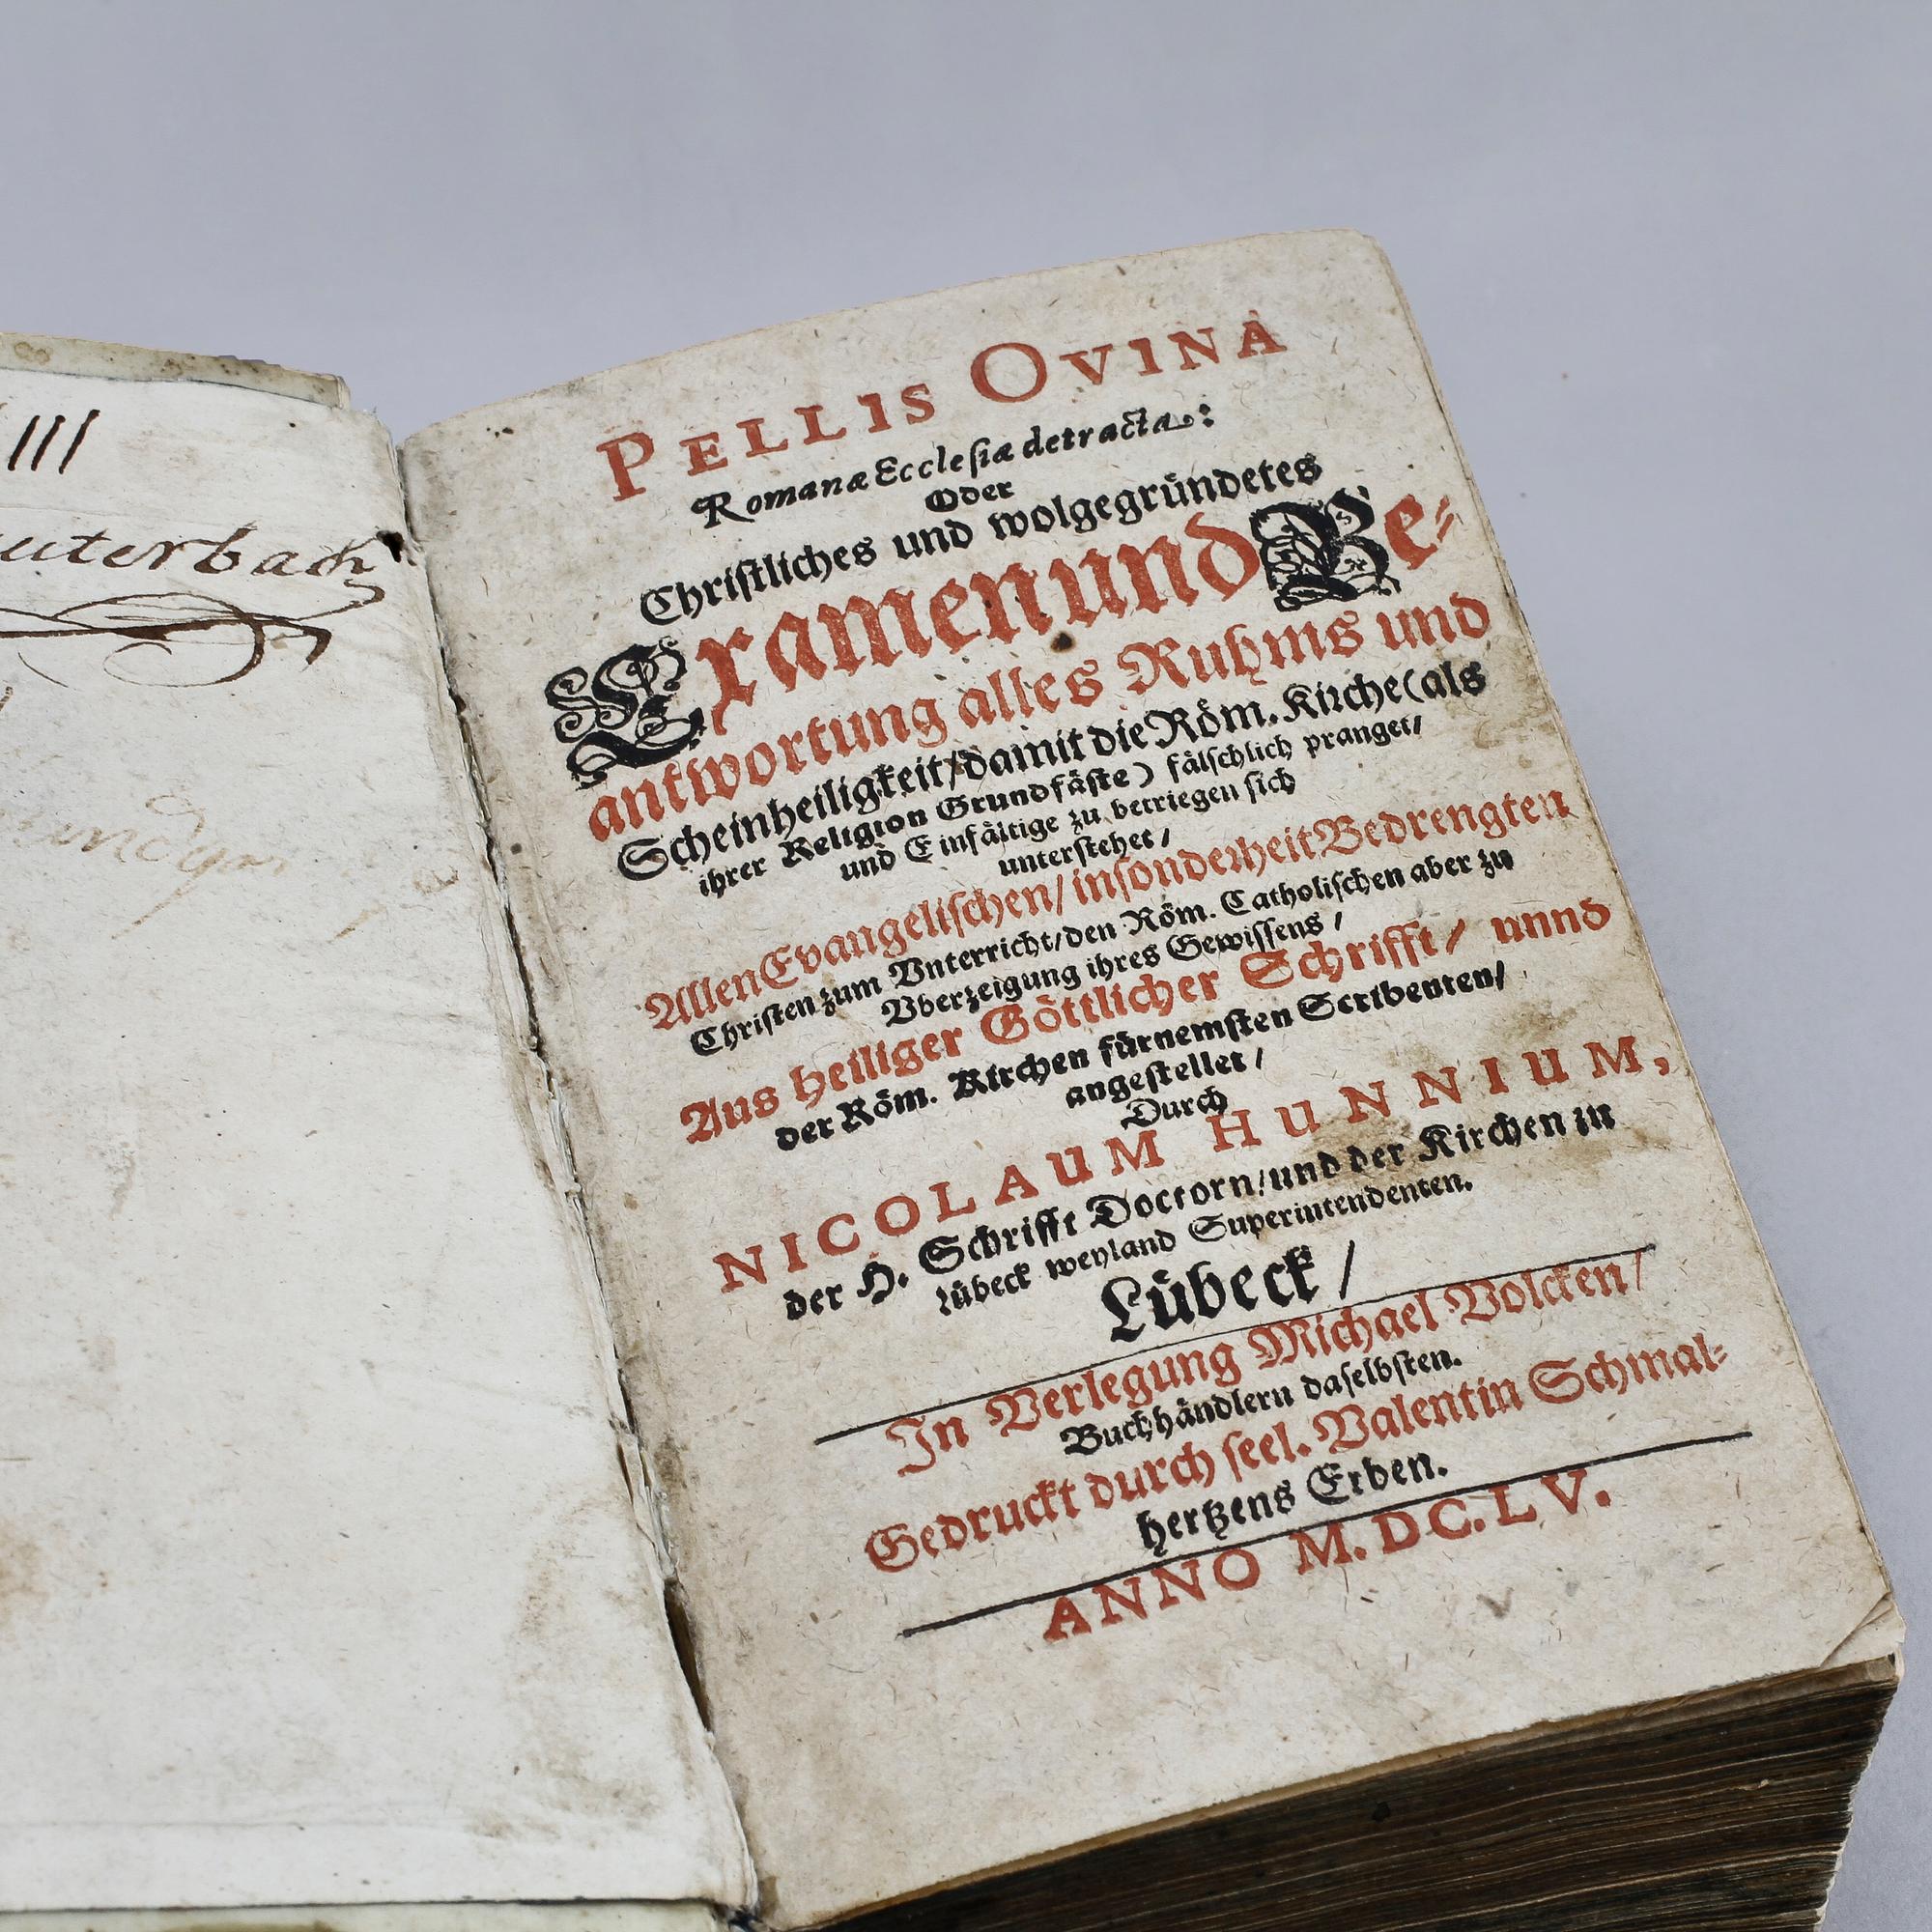 III
uterbach
PELLIS OVINA
Romanæ Ecclesiæ detracta:
Oder
Christliches und wolgegründetes
Examen und Be-
antwortung alles Ruhms und
Scheinheiligkeit/damit die Röm. Kirche (als
ihrer Religion Grundfäste) fälschlich pranget/
und Einfältige zu betriegen sich
unterstehet/
Allen Evangelischen/ insonderheit Bedrengten
Christen zum Vnterricht/den Röm. Catholischen aber zu
Vberzeigung ihres Gewissens/
Aus heiliger Göttlicher Schrifft/ unnd
der Röm. Kirchen fürnemsten Scribenten/
angestellet/
Durch
NICOLAUM HUNNIUM,
der H. Schrifft Doctorn/und der Kirchen zu
Lübeck weyland Superintendenten.
Lübeck/
In Verlegung Michael Volcken/
Buchhändlern daselbsten.
Gedruckt durch seel. Valentin Schmal-
hertzens Erben.
ANNO M.DC.LV.